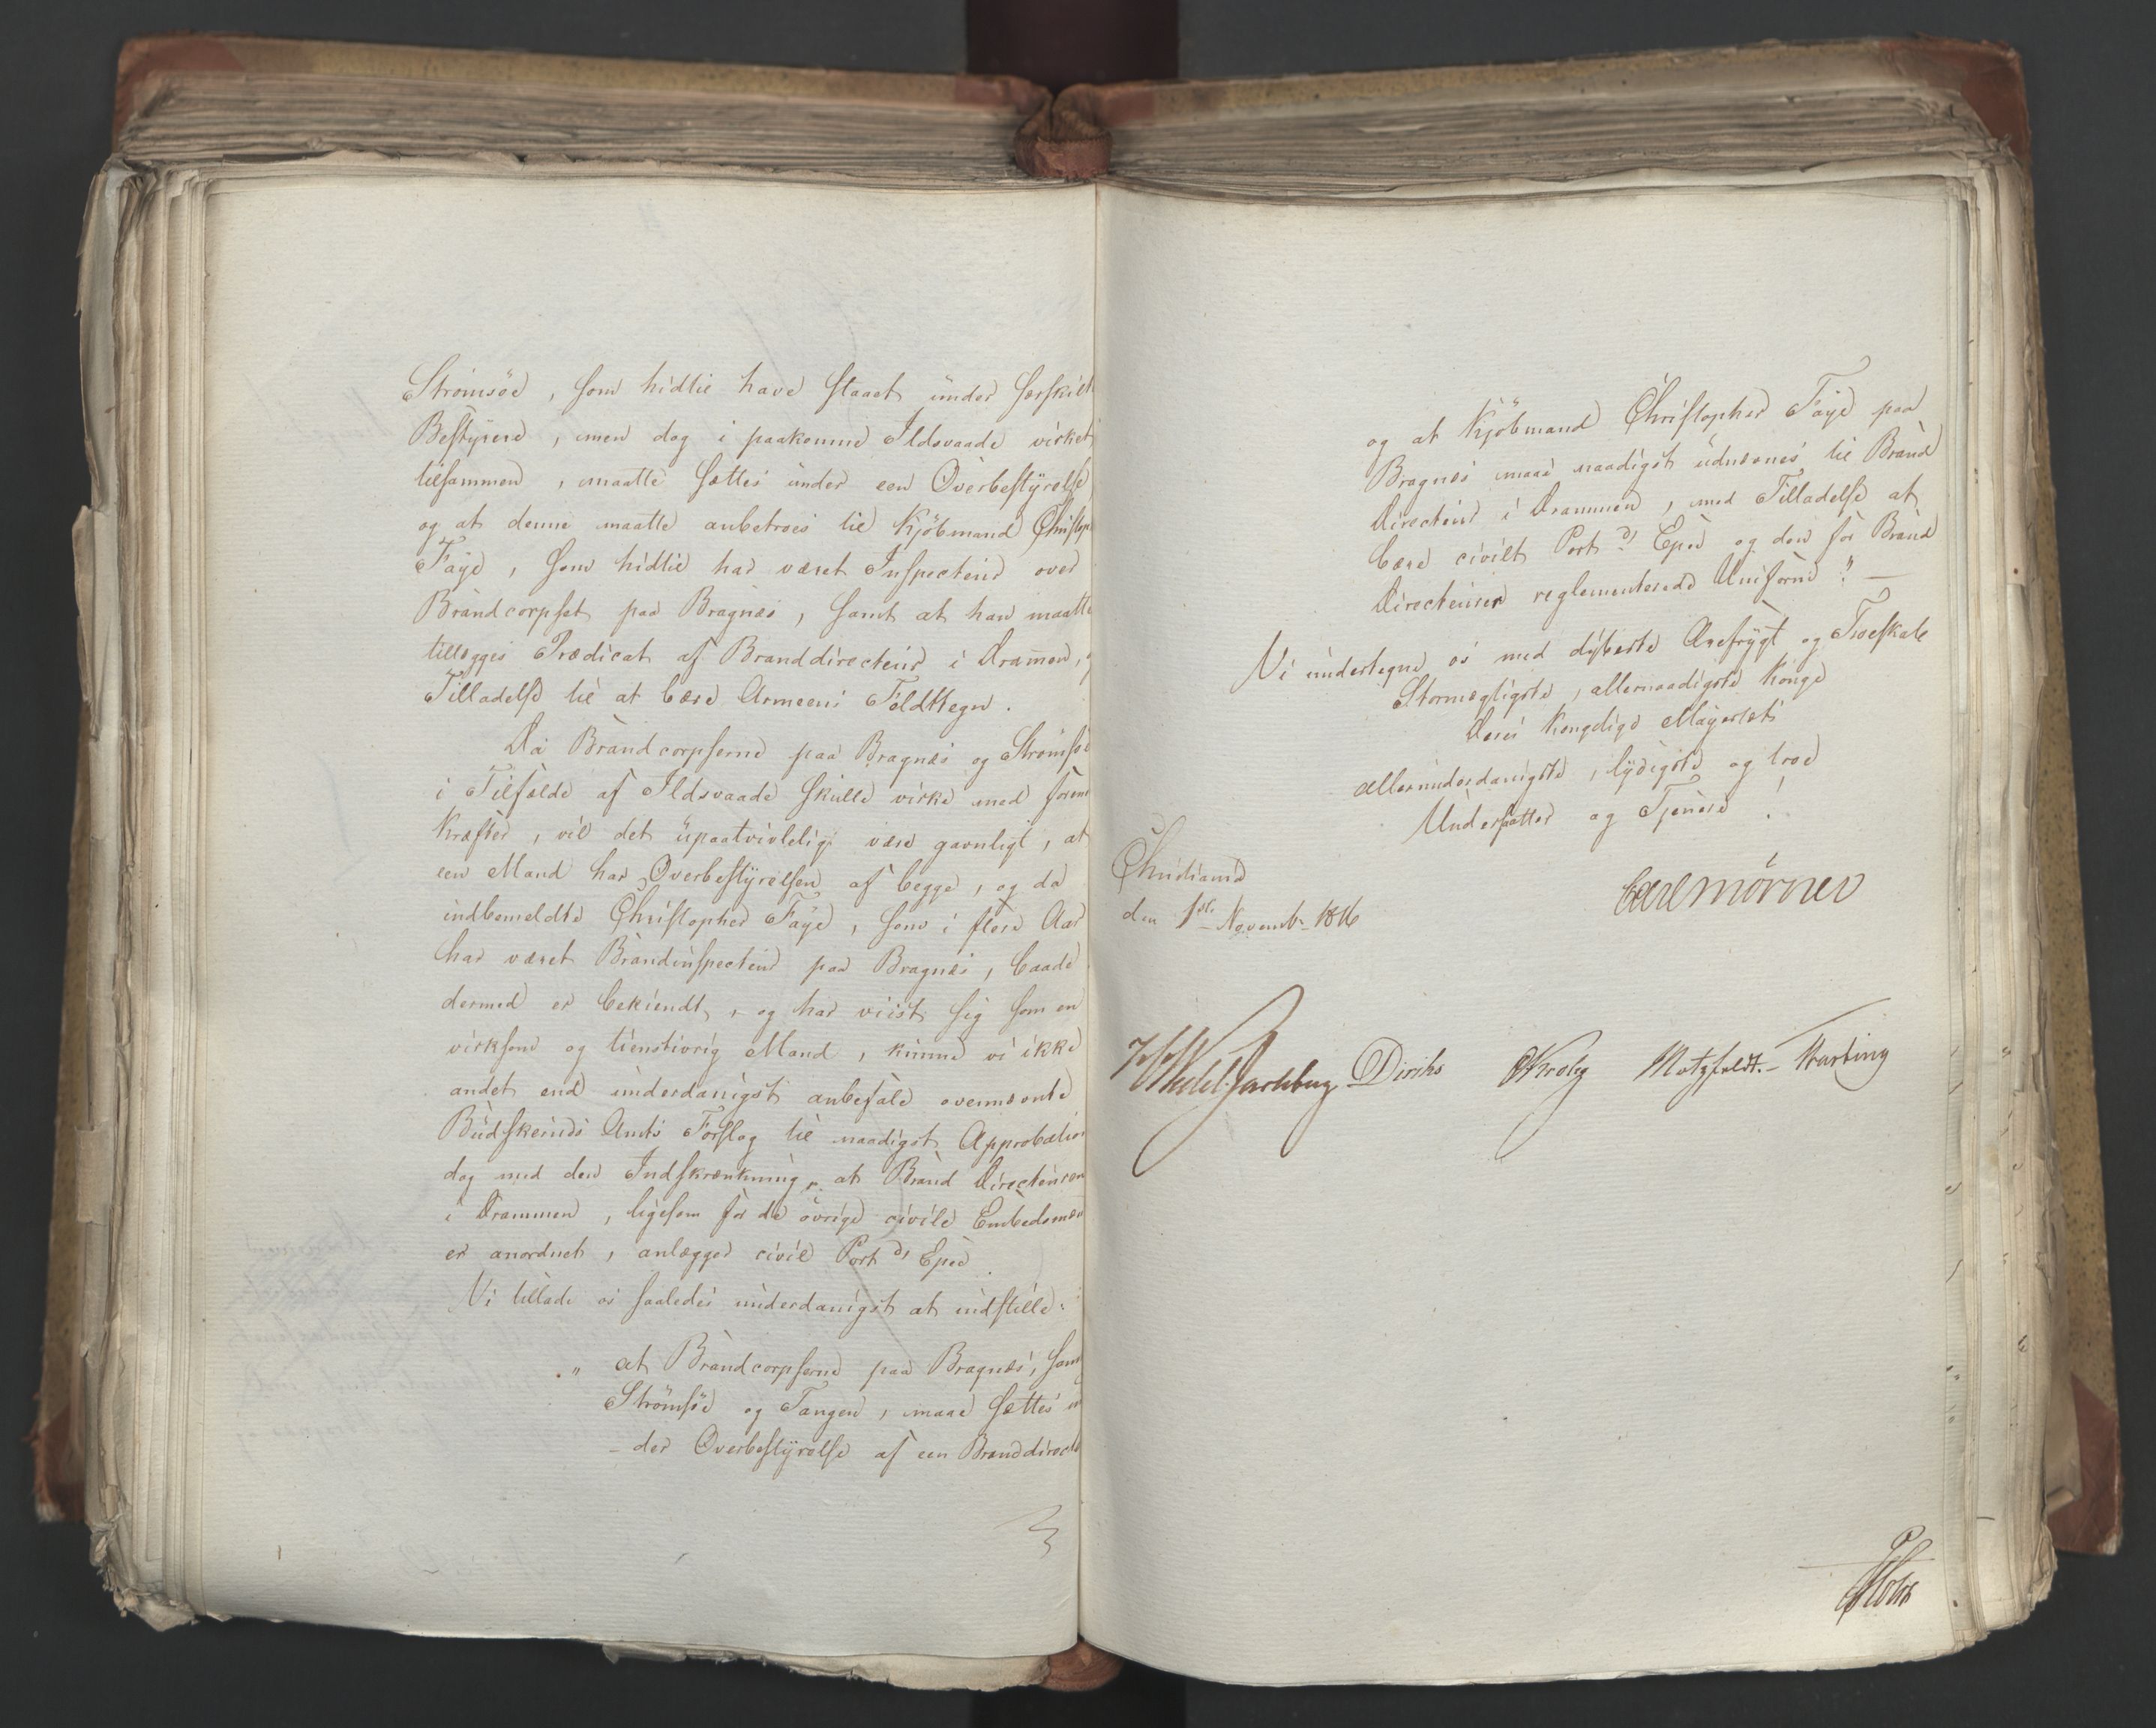 Strömsöe, som hidtil have staaet under særskilt
Bestyrere, men dog i paakomne Ildsvaade virket
tilsammen, maatte sættes under een Overbestyrelse
og at denne maatte anbetroes til Kjöbmand Christop
Faye, som hidtil har været Inspecteur over
Brandcorpset paa Bragnæs, samt at han maatte
tillægges Prædicat af Branddirecteur i Dramen,
Tilladelse til at bære Armeens Feldttegn.
Da Brandcorpserne paa Bragnæs og Strömsöe
i Tilfælde af Ildsvaade skulle virke med forene
Kræfter, vil det upaatvivlelig være gavnligt, at
een Mand har Overbestyrelsen af begge, og da
indbemeldte Christopher Faye, som i flere Aar
har været Brandinspecteur paa Bragnæs, baade
dermed er bekiendt, og har viist sig som en
virksom og tienstivrig Mand, kunne vi ikke
andet end underdanigst anbefale ovennævnte
Budskeruds Amts Forslag til naadigst Approbation
dog med den Indskrænkning, at Brand Directeuren
i Drammen, ligesom for de övrige civile Embedsmæn
er anordnet, anlægger civil Port d' Epee.
Vi tillade os saaledes underdanigst at indstille:
" at Brandcorpserne paa Bragnæs, samt
Strömsöe og Tangen, maae sættes un
- der Overbestyrelse af een Branddirecte
og at Kjöbmand Christopher Faye paa
Bragnæs maae naadigst udnævnes til Brand
Directeur i Drammen, med Tilladelse at
bære civilt Port d' Epee og den for Brand
Directeurer reglementerede Uniform." —
Vi undertegne os med dybeste Ærefrygt og Troeskab
Stormægtigste, allernaadigste Konge
Deres Kongelige Majestæts
allerunderdanigste, lydigste og troe
Undersaatter og Tjenere!
Christiania
den 1ste Novembr 1816
Carl Mörner
HWedel Jarlsberg Diriks Krohg Motzfeldt. Tharting
Holst